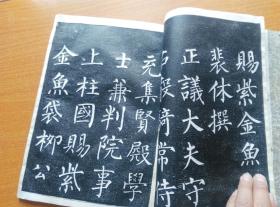 賜紫金魚
裴休撰
正議大夫守
右散騎常侍
充集賢殿學
士兼判院事
上柱國賜紫
金魚袋柳公